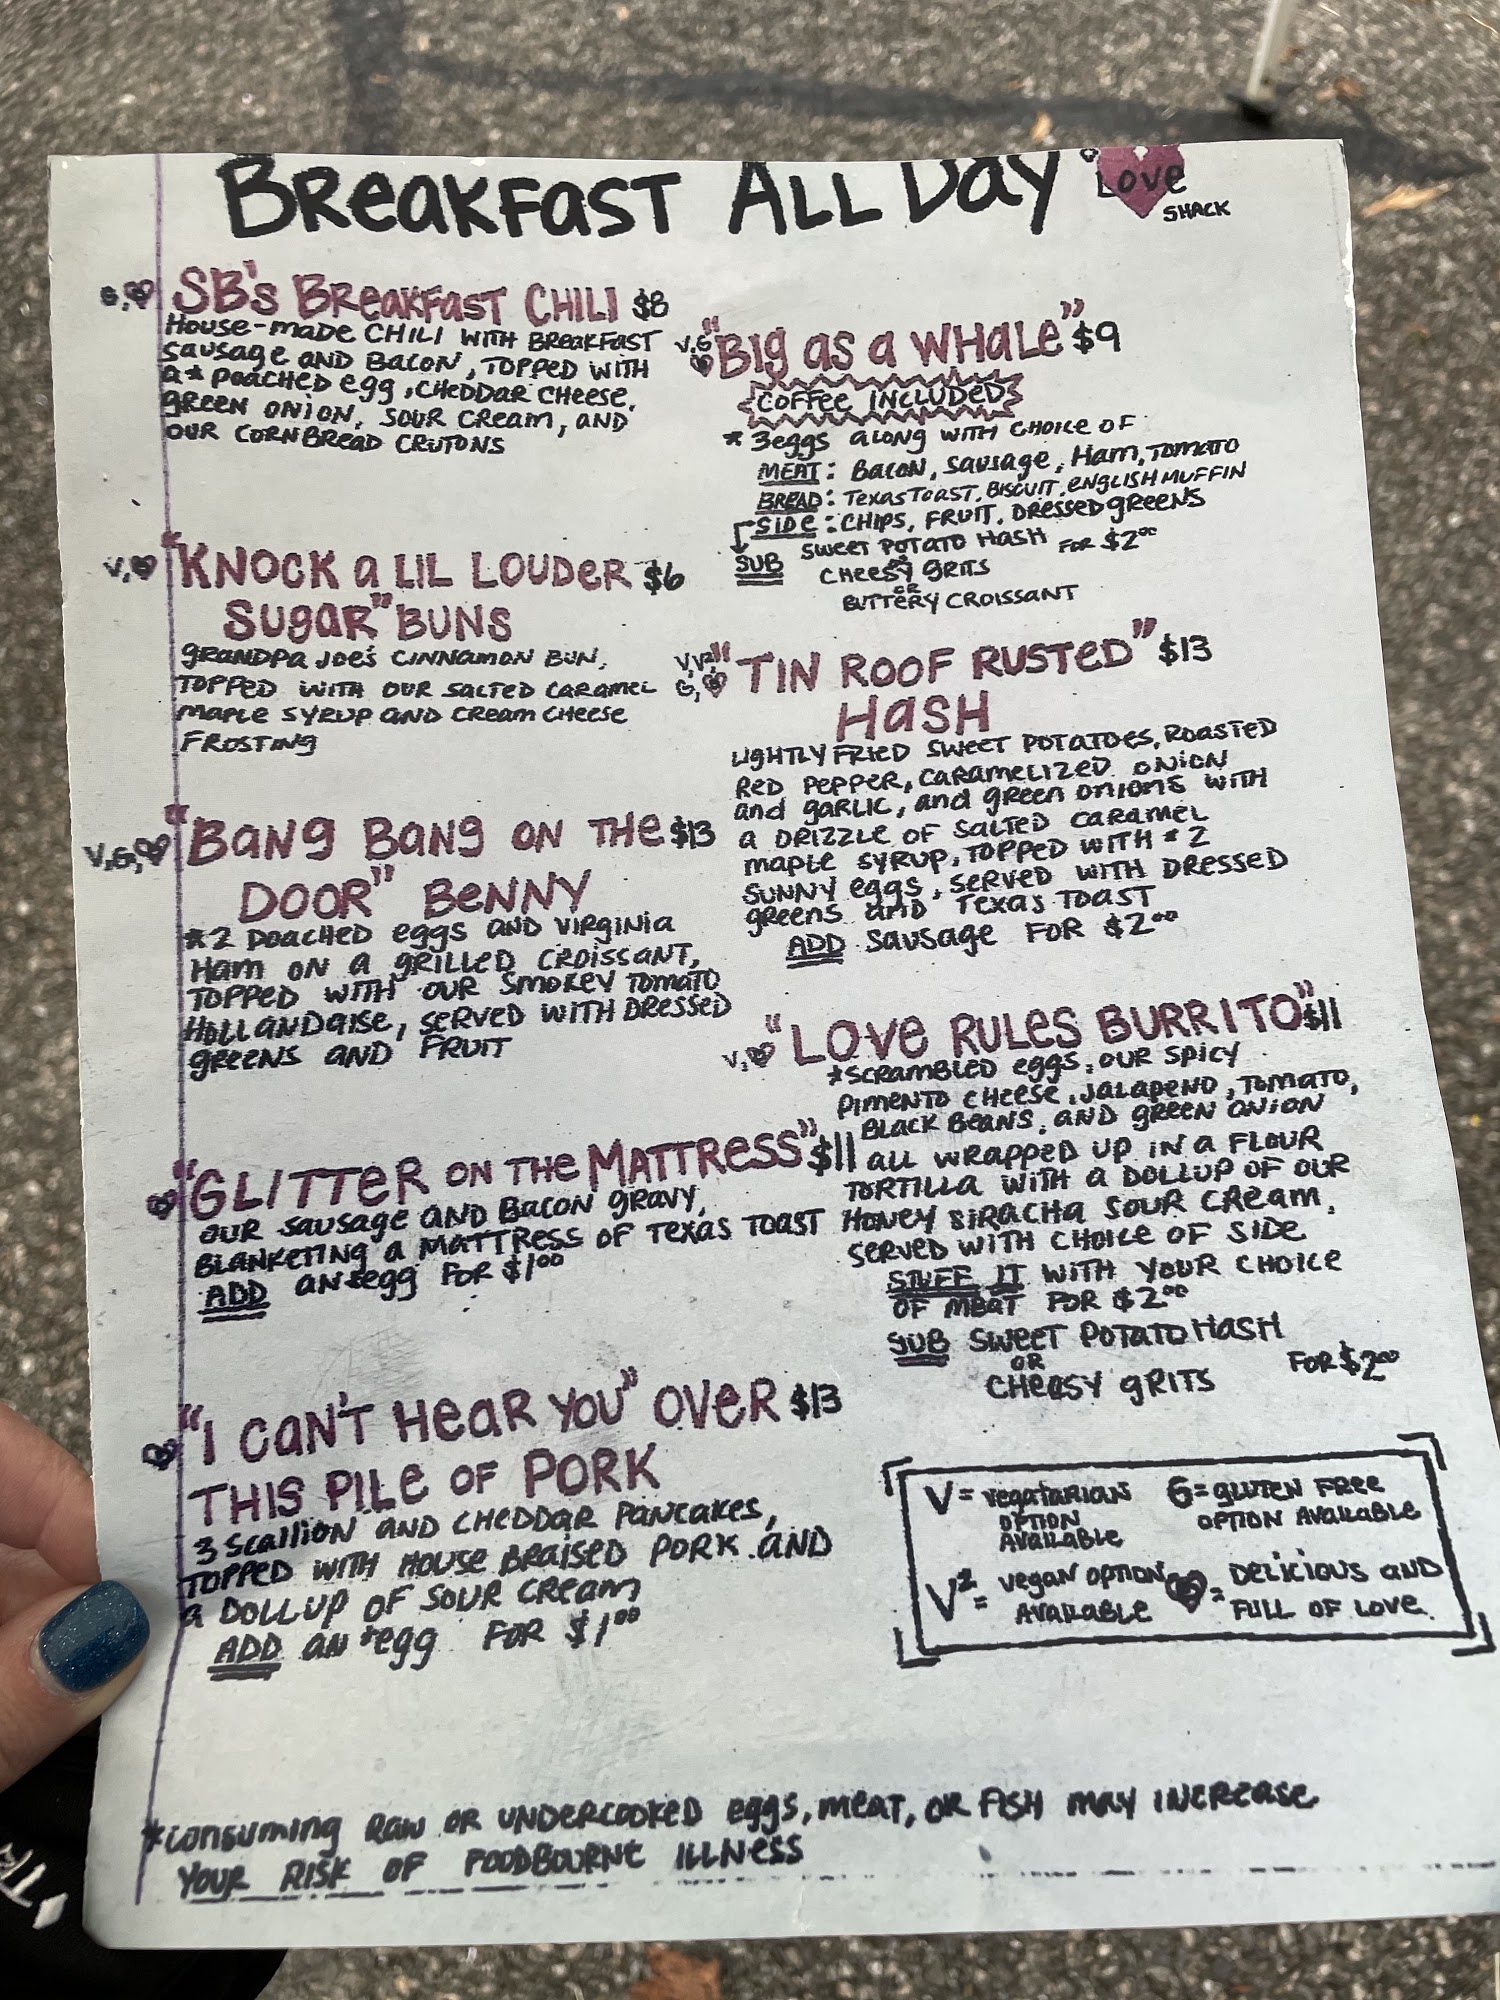 BREAKFAST ALL DAY
LOVE
SHACK
G, SB'S BREAKFAST CHILI $8
HOUSE-MADE CHILI WITH BREAKFAST
SAUSAGE AND BACON, TOPPED WITH
A * POACHED EGG, CHEDDAR CHEESE,
GREEN ONION, SOUR CREAM, AND
OUR CORNBREAD CRUTONS
V, "KNOCK A LIL LOUDER $6
SUGAR" BUNS
GRANDPA JOE'S CINNAMON BUN,
TOPPED WITH OUR SALTED CARAMEL
MAPLE SYRUP AND CREAM CHEESE
FROSTING
V,G, "BANG BANG ON THE $13
DOOR" BENNY
*2 POACHED EGGS AND VIRGINIA
HAM ON A GRILLED CROISSANT,
TOPPED WITH OUR SMOKEY TOMATO
HOLLANDAISE, SERVED WITH DRESSED
GREENS AND FRUIT
"GLITTER ON THE MATTRESS" $11
OUR SAUSAGE AND BACON GRAVY,
BLANKETING A MATTRESS OF TEXAS TOAST
ADD AN *EGG FOR $1.00
"I CAN'T HEAR YOU" OVER $13
THIS PILE OF PORK
3 SCALLION AND CHEDDAR PANCAKES,
TOPPED WITH HOUSE BRAISED PORK AND
A DOLLUP OF SOUR CREAM
ADD AN *EGG FOR $1.00
V,G "BIG AS A WHALE" $9
COFFEE INCLUDED
* 3 EGGS ALONG WITH CHOICE OF
MEAT: BACON, SAUSAGE, HAM, TOMATO
BREAD: TEXAS TOAST, BISCUIT, ENGLISH MUFFIN
SIDE: CHIPS, FRUIT, DRESSED GREENS
SUB SWEET POTATO HASH FOR $2.00
OR
CHEESY GRITS
OR
BUTTERY CROISSANT
V,V²,G, "TIN ROOF RUSTED" $13
HASH
LIGHTLY FRIED SWEET POTATOES, ROASTED
RED PEPPER, CARAMELIZED ONION
AND GARLIC, AND GREEN ONIONS WITH
A DRIZZLE OF SALTED CARAMEL
MAPLE SYRUP, TOPPED WITH * 2
SUNNY EGGS, SERVED WITH DRESSED
GREENS AND TEXAS TOAST
ADD SAUSAGE FOR $2.00
V, "LOVE RULES BURRITO" $11
*SCRAMBLED EGGS, OUR SPICY
PIMENTO CHEESE, JALAPENO, TOMATO,
BLACK BEANS, AND GREEN ONION
ALL WRAPPED UP IN A FLOUR
TORTILLA WITH A DOLLUP OF OUR
HONEY SIRACHA SOUR CREAM,
SERVED WITH CHOICE OF SIDE
STUFF IT WITH YOUR CHOICE
OF MEAT FOR $2.00
SUB SWEET POTATO HASH
OR
CHEESY GRITS FOR $2.00
V = VEGATARIAN OPTION AVAILABLE
G = GLUTEN FREE OPTION AVAILABLE
V² = VEGAN OPTION AVAILABLE
= DELICIOUS AND FULL OF LOVE.
*CONSUMING RAW OR UNDERCOOKED EGGS, MEAT, OR FISH MAY INCREASE
YOUR RISK OF FOODBOURNE ILLNESS